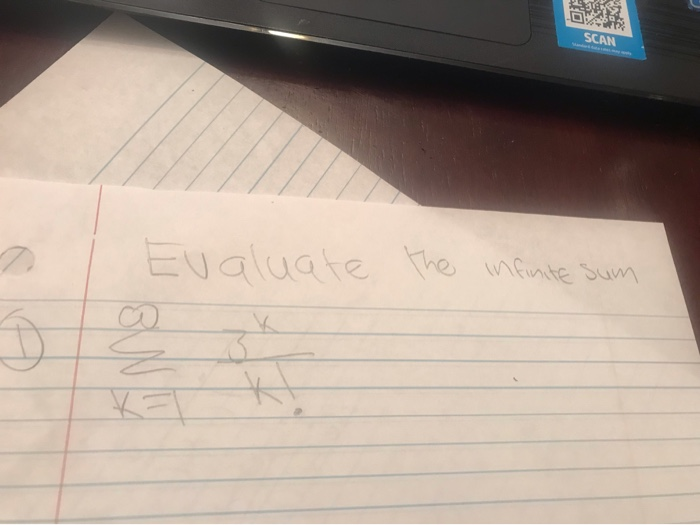 SCAN
Evaluate the infinite sum
① ∞ ∑ k=1 3^k / k!